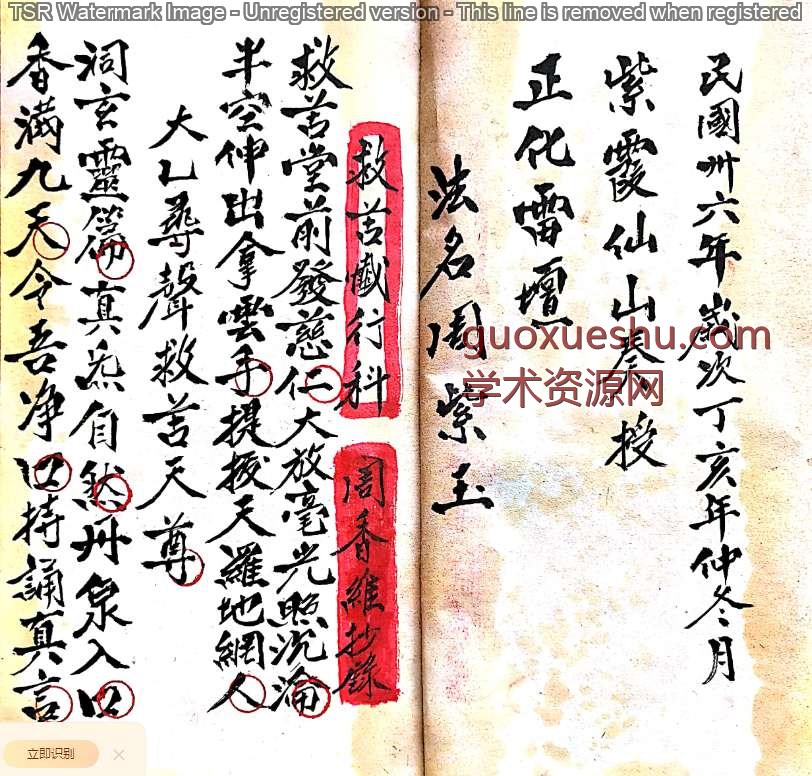 TSR Watermark Image - Unregistered version - This line is removed when registered
民國卅六年歲次丁亥年仲冬月
紫霞仙山奏授
正化雷壇
法名周紫玉
guoxueshu.com
学术资源网
救苦懺行科
周香維抄錄
救苦堂前發慈仁大放毫光照沉淪
半空伸出拿雲手提拔天羅地網人
大乙尋聲救苦天尊
洞玄靈篇真炁自然丹泉入口
香滿九天令吾净口持誦真言
立即识别